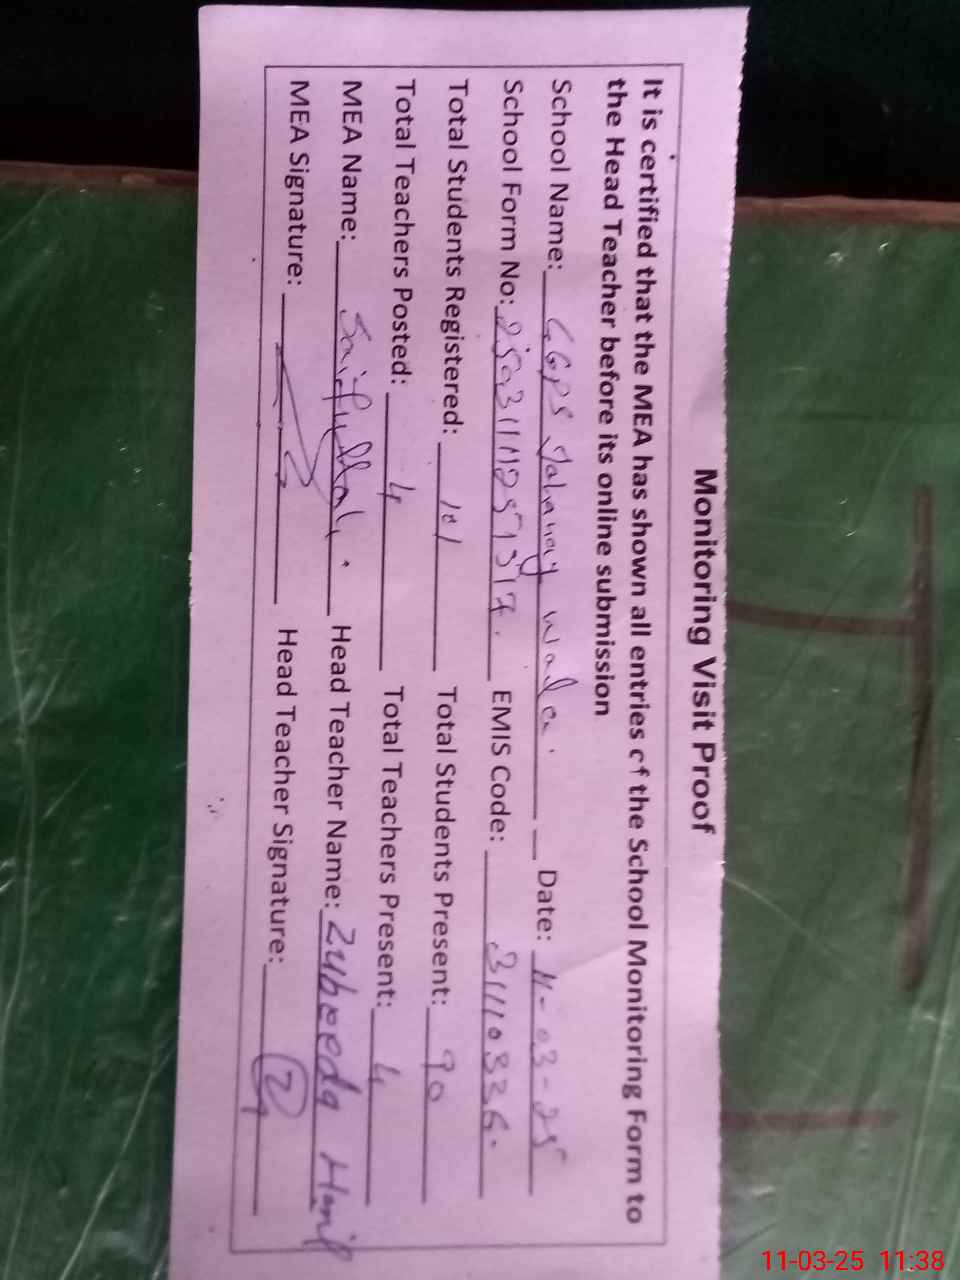 Monitoring Visit Proof
It is certified that the MEA has shown all entries of the School Monitoring Form to
the Head Teacher before its online submission
School Name: GGPS Date: 11-03-25
School Form No: EMIS Code: 31110336.
Total Students Registered: 101 Total Students Present: 90
Total Teachers Posted: 4 Total Teachers Present: 4
MEA Name: Saifullah. Head Teacher Name: Zubeeda Hanif
MEA Signature: Head Teacher Signature:
11-03-25 11:38